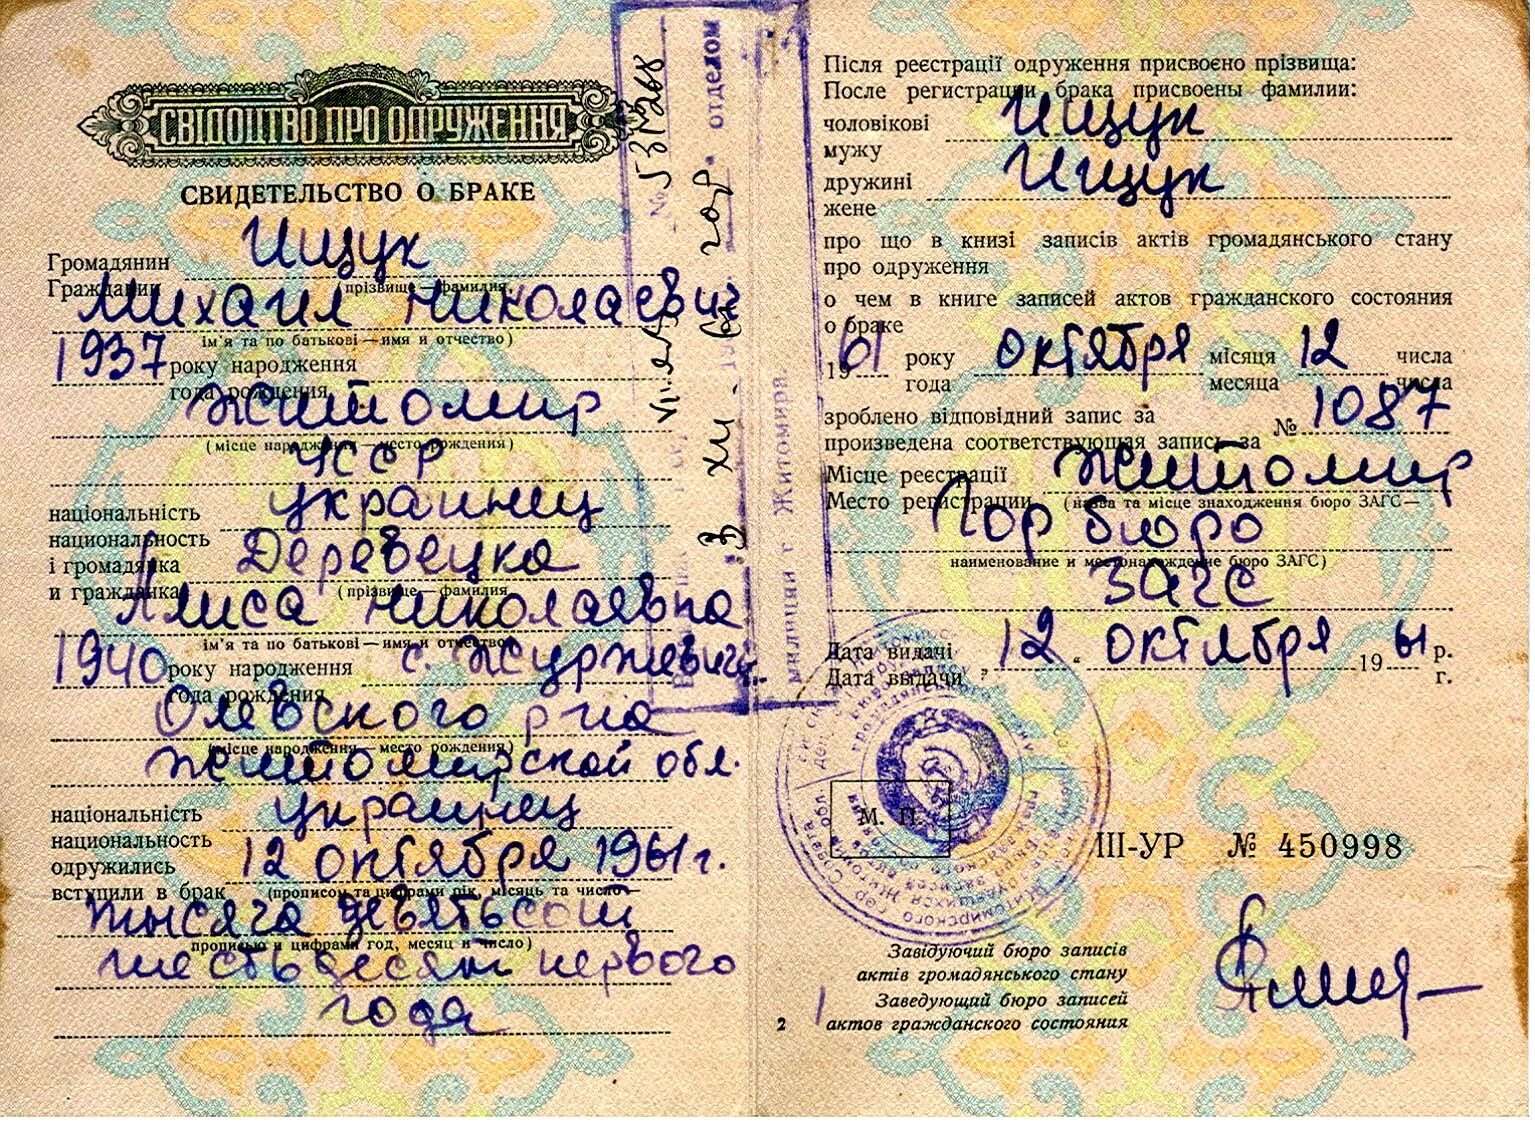 СВІДОЦТВО ПРО ОДРУЖЕННЯ
СВИДЕТЕЛЬСТВО О БРАКЕ
Громадянин Ищук
Гражданин
(прізвище — фамилия,
Михаил Николаевич
ім'я та по батькові — имя и отчество)
1937 року народження
года рождения
Житомир
(місце народження — место рождения)
УССР
національність украинец
национальность
і громадянка Деревецка
и гражданка
(прізвище — фамилия,
Алиса Николаевна
ім'я та по батькові — имя и отчество)
1940 року народження с. Журжевичи
года рождения
Олевского р-на
(місце народження — место рождения)
Житомирской обл.
національність украинец
национальность
одружились 12 октября 1961 г.
вступили в брак
(прописом та цифрами рік, місяць та число —
тысяча девятьсот
прописью и цифрами год, месяц и число)
шестьдесят первого
года
№
отделом
гор
3 XII
милиции г. Житомира
Після реєстрації одруження присвоєно прізвища:
После регистрации брака присвоены фамилии:
чоловікові Ищук
мужу
дружині Ищук
жене
про що в книзі записів актів громадянського стану
про одруження
о чем в книге записей актов гражданского состояния
о браке
1961 року октября місяця 12 числа
года месяца числа
зроблено відповідний запис за № 1087
произведена соответствующая запись за
Місце реєстрації Житомир
Место регистрации
(назва та місце знаходження бюро ЗАГС —
Гор бюро
наименование и местонахождение бюро ЗАГС)
ЗАГС
Дата видачі „12" октября 1961 р.
Дата выдачи г.
М. П.
III-УР № 450998
Завідуючий бюро записів
актів громадянського стану
Заведующий бюро записей
актов гражданского состояния
2